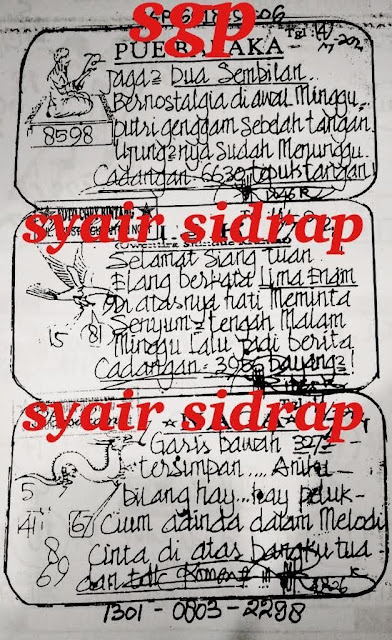 sgp
PUE BATAKA
Jaga² Dua Sembilan..
Bernostalgia di awal Minggu
putri genggam sebelah tangan
Ujung²nya Sudah Menunggu
Cadangan - 6630
8598
syair sidrap
Selamat Siang Tuan
Elang berkata Lima Enam
Di atasnya hati Meminta
Senyum² tengah Malam
Minggu Lalu Jadi berita
Cadangan :
15 8
syair sidrap
Garis bawah 327
tersimpan....
bilang hay...hay peluk-
Cium adinda dalam Melodi
Cinta di atas bangku tua
5
41 67
8
69
1301-0803-2298